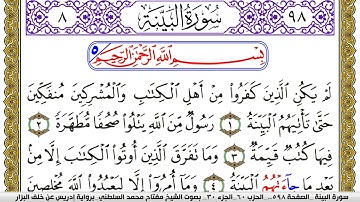 ٩٨ سُورَةُ البَيِّنَةِ ٨
بِسْمِ اللَّهِ الرَّحْمَٰنِ الرَّحِيمِ
لَمْ يَكُنِ الَّذِينَ كَفَرُوا مِنْ أَهْلِ الْكِتَابِ وَالْمُشْرِكِينَ مُنفَكِّينَ
حَتَّىٰ تَأْتِيَهُمُ الْبَيِّنَةُ ١ رَسُولٌ مِّنَ اللَّهِ يَتْلُوا صُحُفًا مُّطَهَّرَةً ٢
فِيهَا كُتُبٌ قَيِّمَةٌ ٣ وَمَا تَفَرَّقَ الَّذِينَ أُوتُوا الْكِتَابَ إِلَّا مِنۢ
بَعْدِ مَا جَآءَتْهُمُ الْبَيِّنَةُ ٤ وَمَآ أُمِرُوٓا إِلَّا لِيَعْبُدُوا اللَّهَ مُخْلِصِينَ
سورة البينة . الصفحة ٥٩٨ . الحزب ٦٠ . الجزء ٣٠ . بصوت الشيخ مفتاح محمد السلطني . برواية إدريس عن خلف البزار